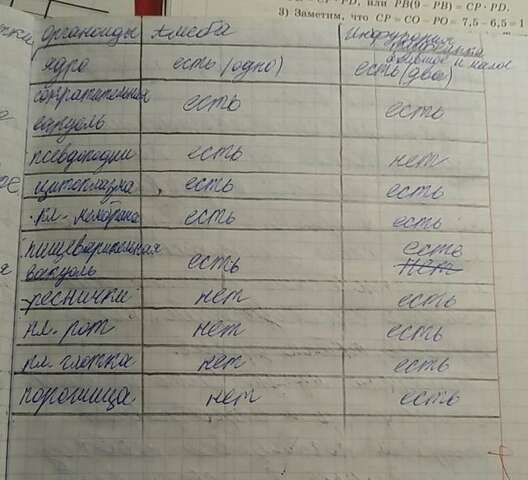 CP·PD, или PB(9 − PB) = CP·PD.
3) Заметим, что CP = CO − PO = 7,5 − 6,5 = 1
органоиды Амёба Инфузория
туфелька
ядро есть (одно) есть (два) большое и малое
сократительная вакуоль есть есть
псевдоподии есть нет
цитоплазма есть есть
кл. мембрана есть есть
пищеварительная вакуоль есть есть нет
реснички нет есть
кл. рот нет есть
кл. глотка нет есть
порошица нет есть